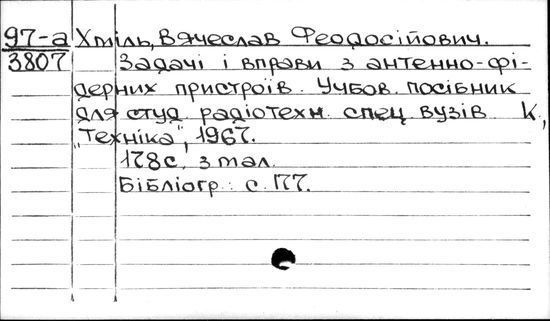 97-а Хміль, Вячеслав Феодосійович.
3807 Задачі і вправи з антенно-фі-
дерних пристроїв. Учбов. посібник
для студ. радіотехн. спец. вузів. К.,
"Техніка", 1967.
178 с. з мал.
Бібліогр.: с. 177.